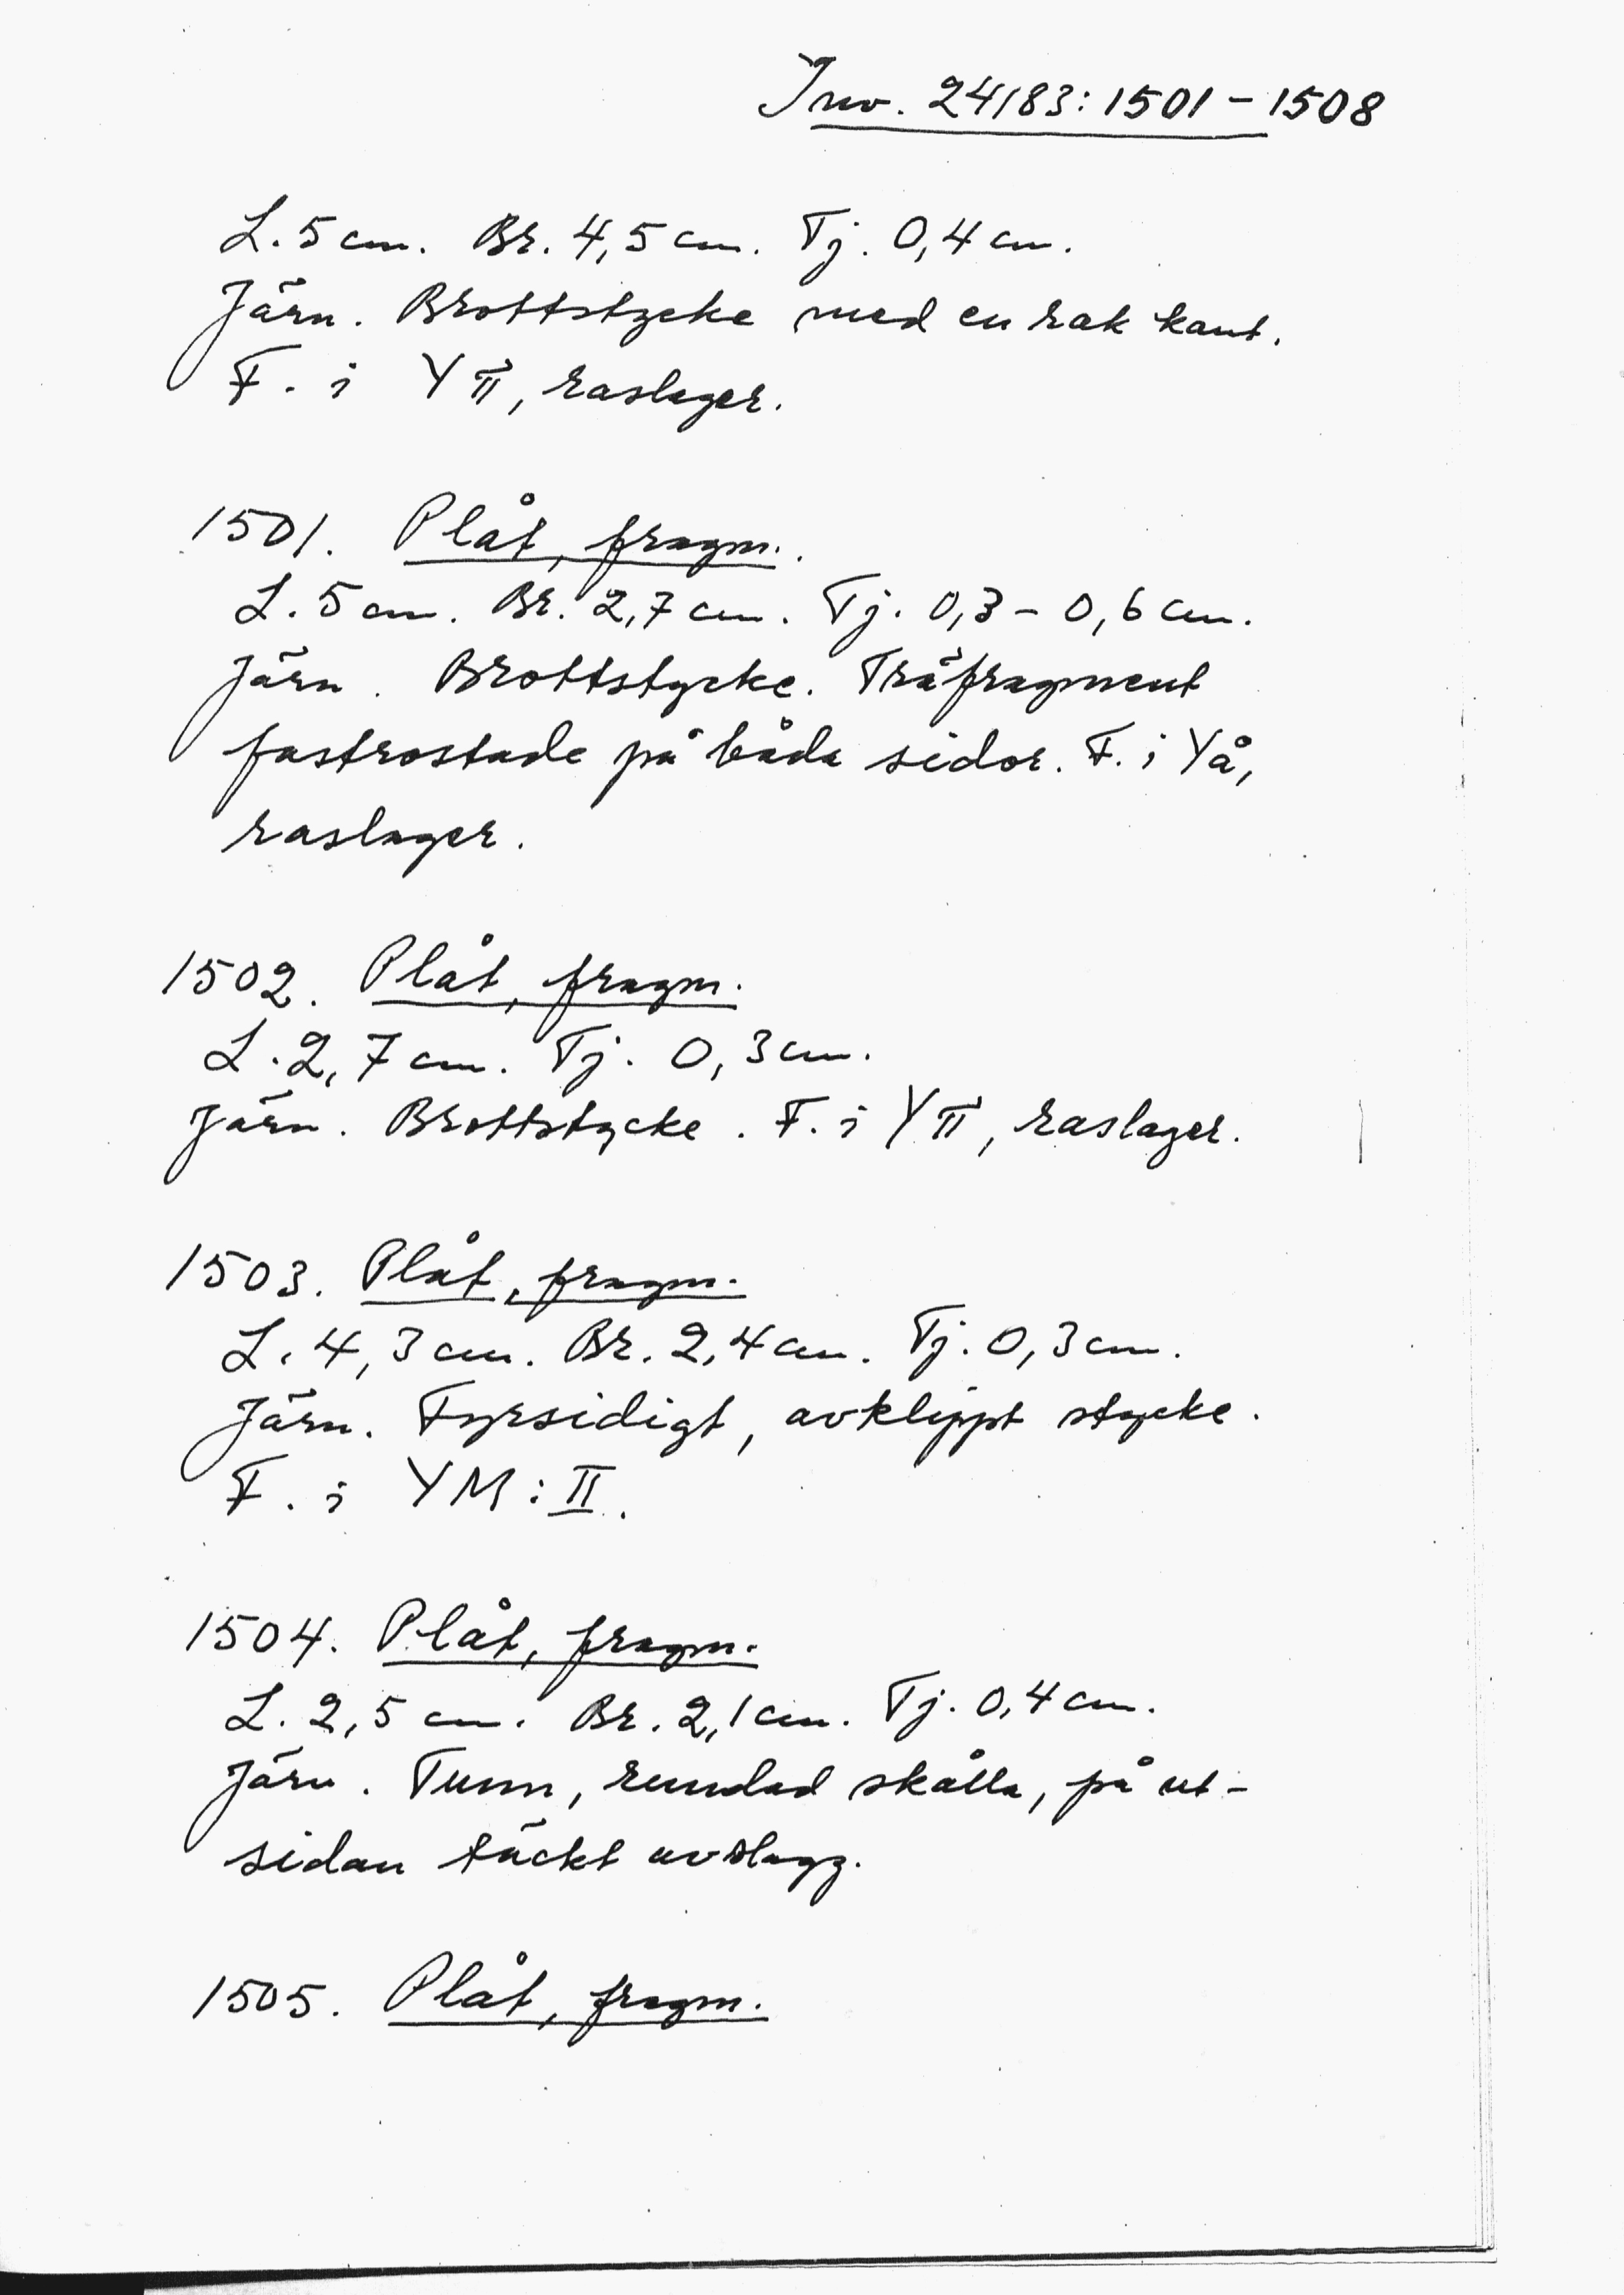 Inv. 24183:1501-1508
L. 5 cm. Br. 4,5 cm. Tj. 0,4 cm.
Järn. Brottstycke med en rak kant.
F. i Y II, raslager.
1501. Plåt, fragm.
L. 5 cm. Br. 2,7 cm. Tj. 0,3 - 0,6 cm.
Järn. Brottstycke. Träfragment
fastrostade på båda sidor. F. i Yå,
raslager.
1502. Plåt, fragm.
L. 2,7 cm. Tj. 0,3 cm.
Järn. Brottstycke. F. i Y II, raslager.
1503. Plåt, fragm.
L. 4,3 cm. Br. 2,4 cm. Tj. 0,3 cm.
Järn. Fyrsidigt, avklippt stycke.
F. i YM:II.
1504. Plåt, fragm.
L. 2,5 cm. Br. 2,1 cm. Tj. 0,4 cm.
Järn. Tunn, rundad skålla, på ut-
sidan täckt av slagg.
1505. Plåt, fragm.